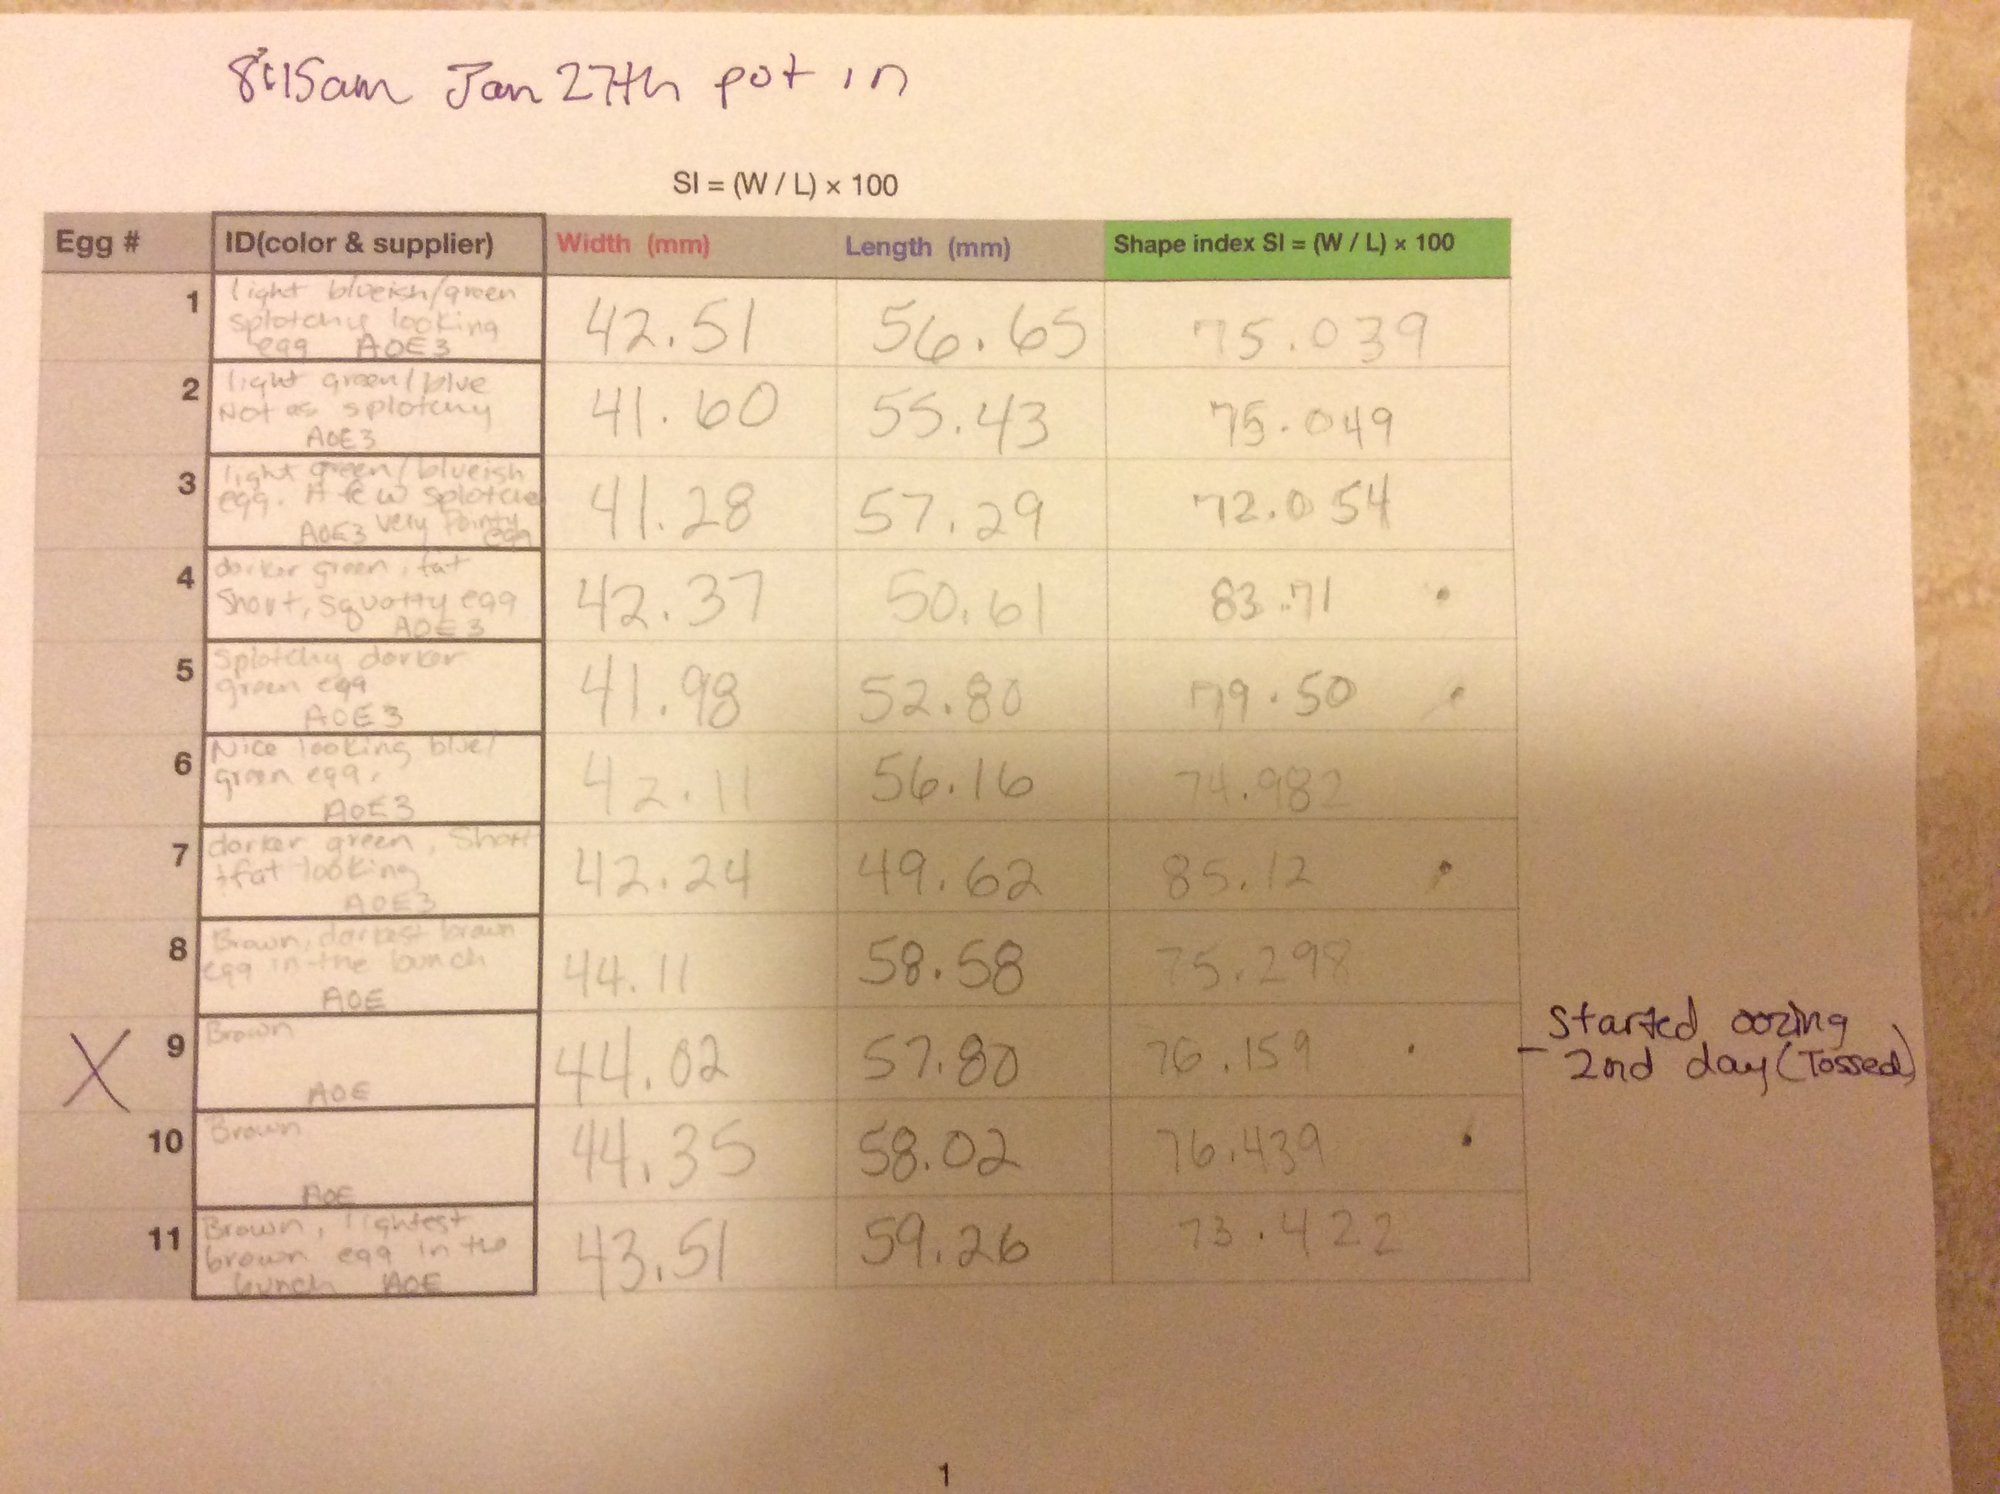 8:15am Jan 27th put in
SI = (W / L) × 100
Egg # ID(color & supplier) Width (mm) Length (mm) Shape index SI = (W / L) × 100
1 light blueish/green
splotchy looking
egg AOE3 42.51 56.65 75.039
2 light green/blue
Not as splotchy
AOE3 41.60 55.43 75.049
3 light green/blueish
egg. A few splotche
AOE3 very pointy
egg 41.28 57.29 72.054
4 darker green, fat
Short, squatty egg
AOE3 42.37 50.61 83.71
5 Splotchy darker
green egg
AOE3 41.98 52.80 79.50
6 Nice looking blue/
green egg.
AOE3 42.11 56.16 74.982
7 darker green, Short
+fat looking
AOE3 42.24 49.62 85.12
8 Brown, darkest brown
egg in the bunch
AOE 44.11 58.58 75.298
X 9 Brown
AOE 44.02 57.80 76.159
- Started oozing
2nd day (Tossed)
10 Brown
AOE 44.35 58.02 76.439
11 Brown, lightest
brown egg in the
bunch AOE 43.51 59.26 73.422
1